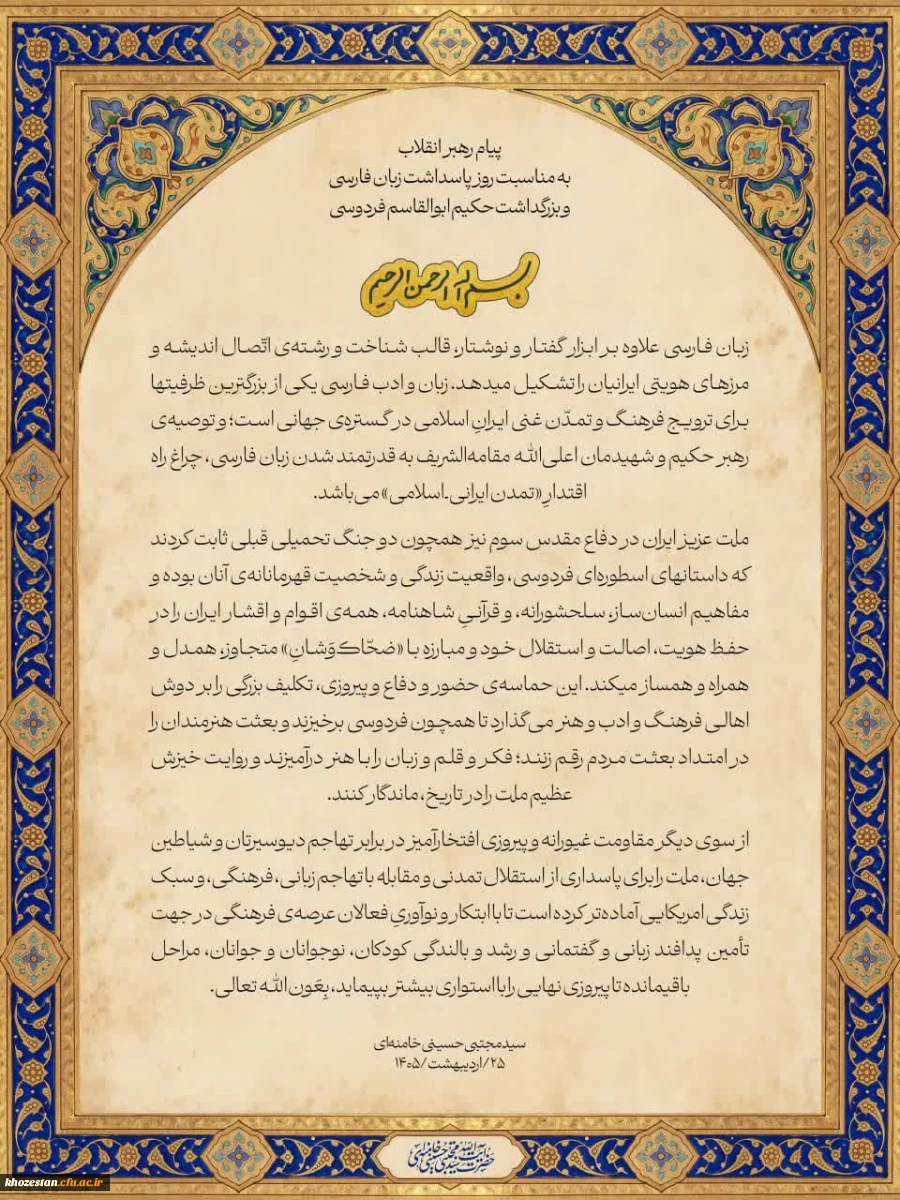 پیام رهبر انقلاب
به مناسبت روز پاسداشت زبان فارسی
و بزرگداشت حکیم ابوالقاسم فردوسی
بسم الله الرحمن الرحیم
زبان فارسی علاوه بر ابزار گفتار و نوشتار، قالب شناخت و رشته‌ی اتّصال اندیشه و
مرزهای هویتی ایرانیان را تشکیل میدهد. زبان و ادب فارسی یکی از بزرگترین ظرفیتها
برای ترویج فرهنگ و تمدّن غنی ایرانِ اسلامی در گستره‌ی جهانی است؛ و توصیه‌ی
رهبر حکیم و شهیدمان اعلی‌الله مقامه‌الشریف به قدرتمند شدن زبان فارسی، چراغ راه
اقتدارِ «تمدن ایرانی ـ اسلامی» می‌باشد.
ملت عزیز ایران در دفاع مقدس سوم نیز همچون دو جنگ تحمیلی قبلی ثابت کردند
که داستانهای اسطوره‌ای فردوسی، واقعیت زندگی و شخصیت قهرمانانه‌ی آنان بوده و
مفاهیم انسان‌ساز، سلحشورانه، و قرآنیِ شاهنامه، همه‌ی اقوام و اقشار ایران را در
حفظ هویت، اصالت و استقلال خود و مبارزه با «ضحّاک‌وَشانِ» متجاوز، همدل و
همراه و همساز میکند. این حماسه‌ی حضور و دفاع و پیروزی، تکلیف بزرگی را بر دوش
اهالی فرهنگ و ادب و هنر می‌گذارد تا همچون فردوسی برخیزند و بعثت هنرمندان را
در امتداد بعثت مردم رقم زنند؛ فکر و قلم و زبان را با هنر درآمیزند و روایت خیزش
عظیم ملت را در تاریخ، ماندگار کنند.
از سوی دیگر مقاومت غیورانه و پیروزی افتخارآمیز در برابر تهاجم دیوسیرتان و شیاطین
جهان، ملت را برای پاسداری از استقلال تمدنی و مقابله با تهاجم زبانی، فرهنگی، و سبک
زندگی امریکایی آماده‌تر کرده است تا با ابتکار و نوآوریِ فعالان عرصه‌ی فرهنگی در جهت
تأمین پدافند زبانی و گفتمانی و رشد و بالندگی کودکان، نوجوانان و جوانان، مراحل
باقیمانده تا پیروزی نهایی را با استواری بیشتر بپیماید، بِعَون‌الله تعالی.
سیدمجتبی حسینی خامنه‌ای
۲۵/اردیبهشت/۱۴۰۵
حضرت آیت‌الله سید مجتبی حسینی خامنه‌ای
khozestan.cfu.ac.ir